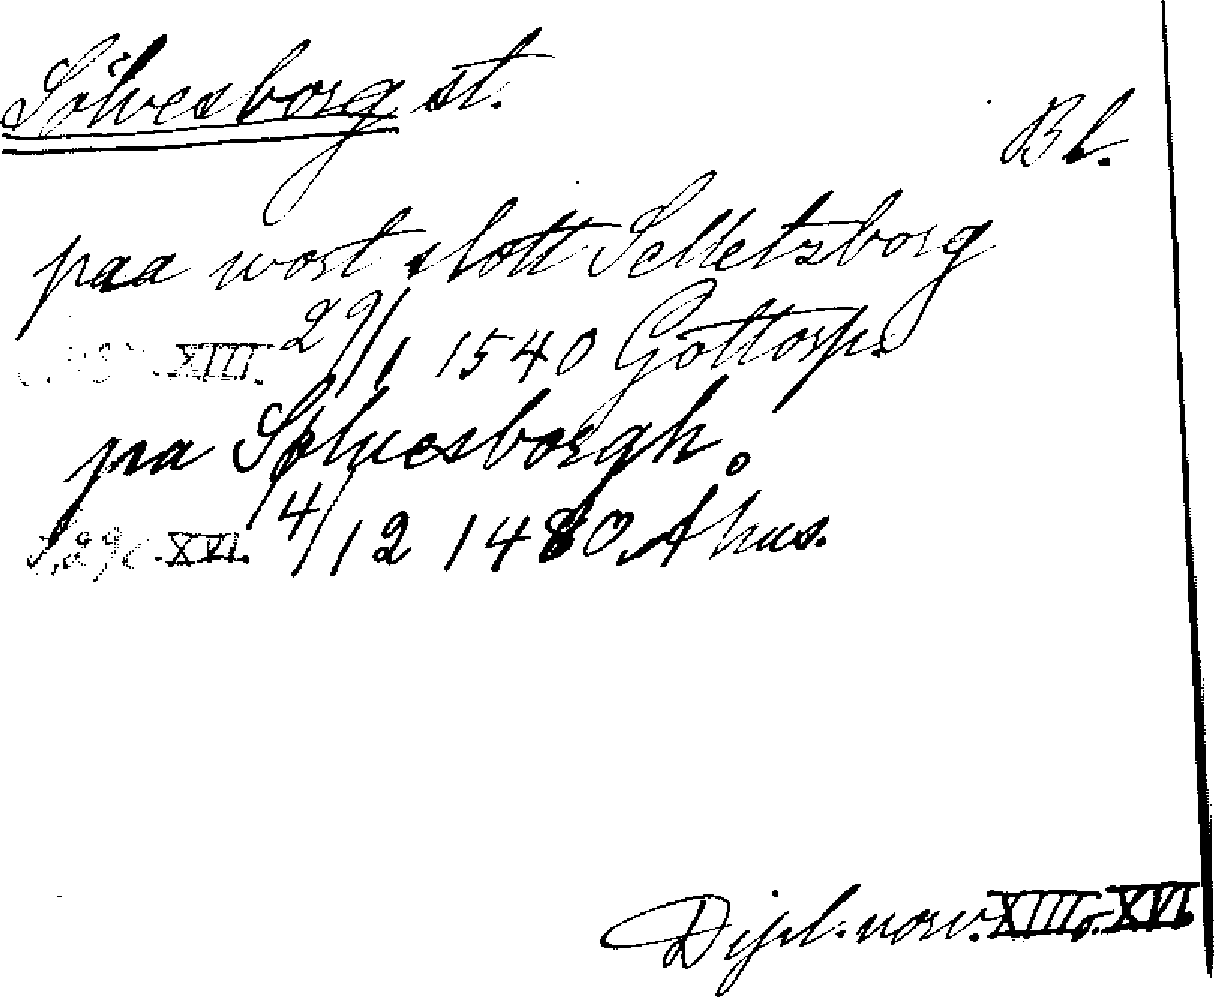 Sölvesborg st.
Bl.
paa wort slott Selletzborg
XIII. 29/1 1540 Gottorp.
paa Sølvesborgh.
S. 296. XVI. 14/12 1480 Åhus.
Dipl. norv. XIII o. XVI.